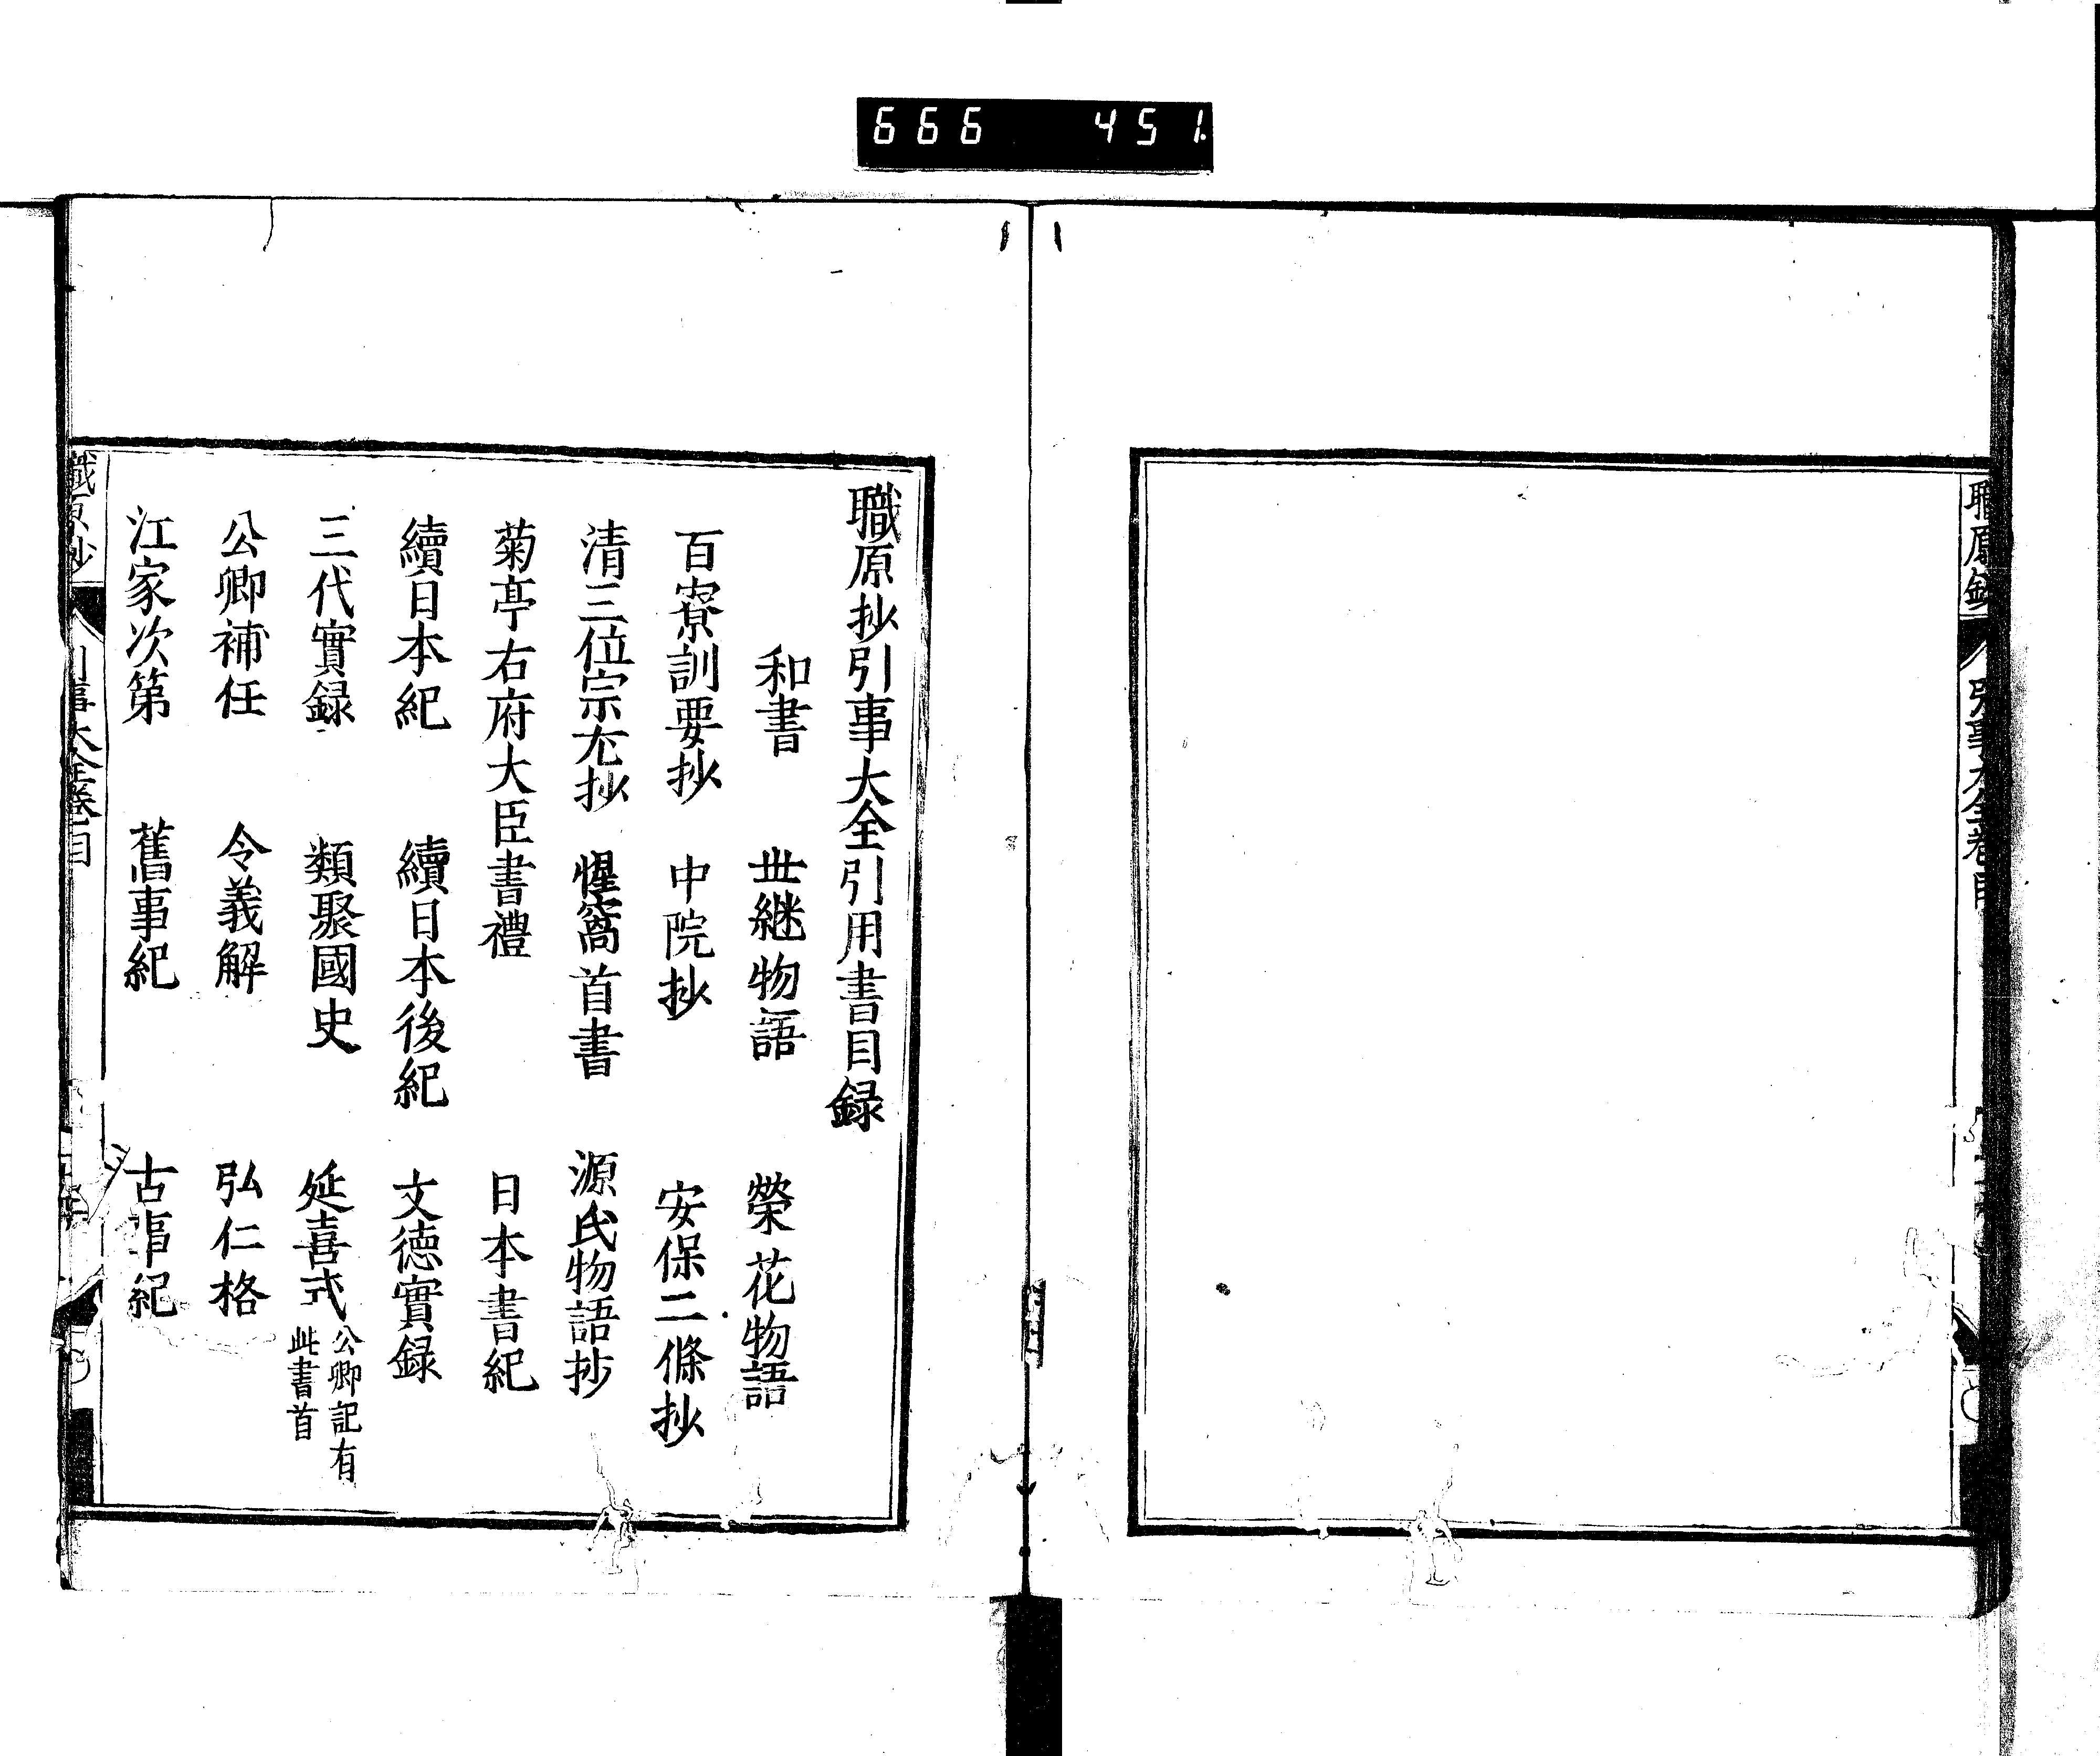 666 451
職原鈔 引事大全巻目
職原抄引事大全引用書目録
和書 世継物語 榮花物語
百寮訓要抄 中院抄 安保二條抄
清三位宗尤抄 惺窩首書 源氏物語抄
菊亭右府大臣書禮 日本書紀
續日本紀 續日本後紀 文徳實録
三代實録 類聚國史 延喜式 公卿記有
此書首
公卿補任 令義解 弘仁格
江家次第 舊事紀 古事紀
職原抄 引事大全巻目